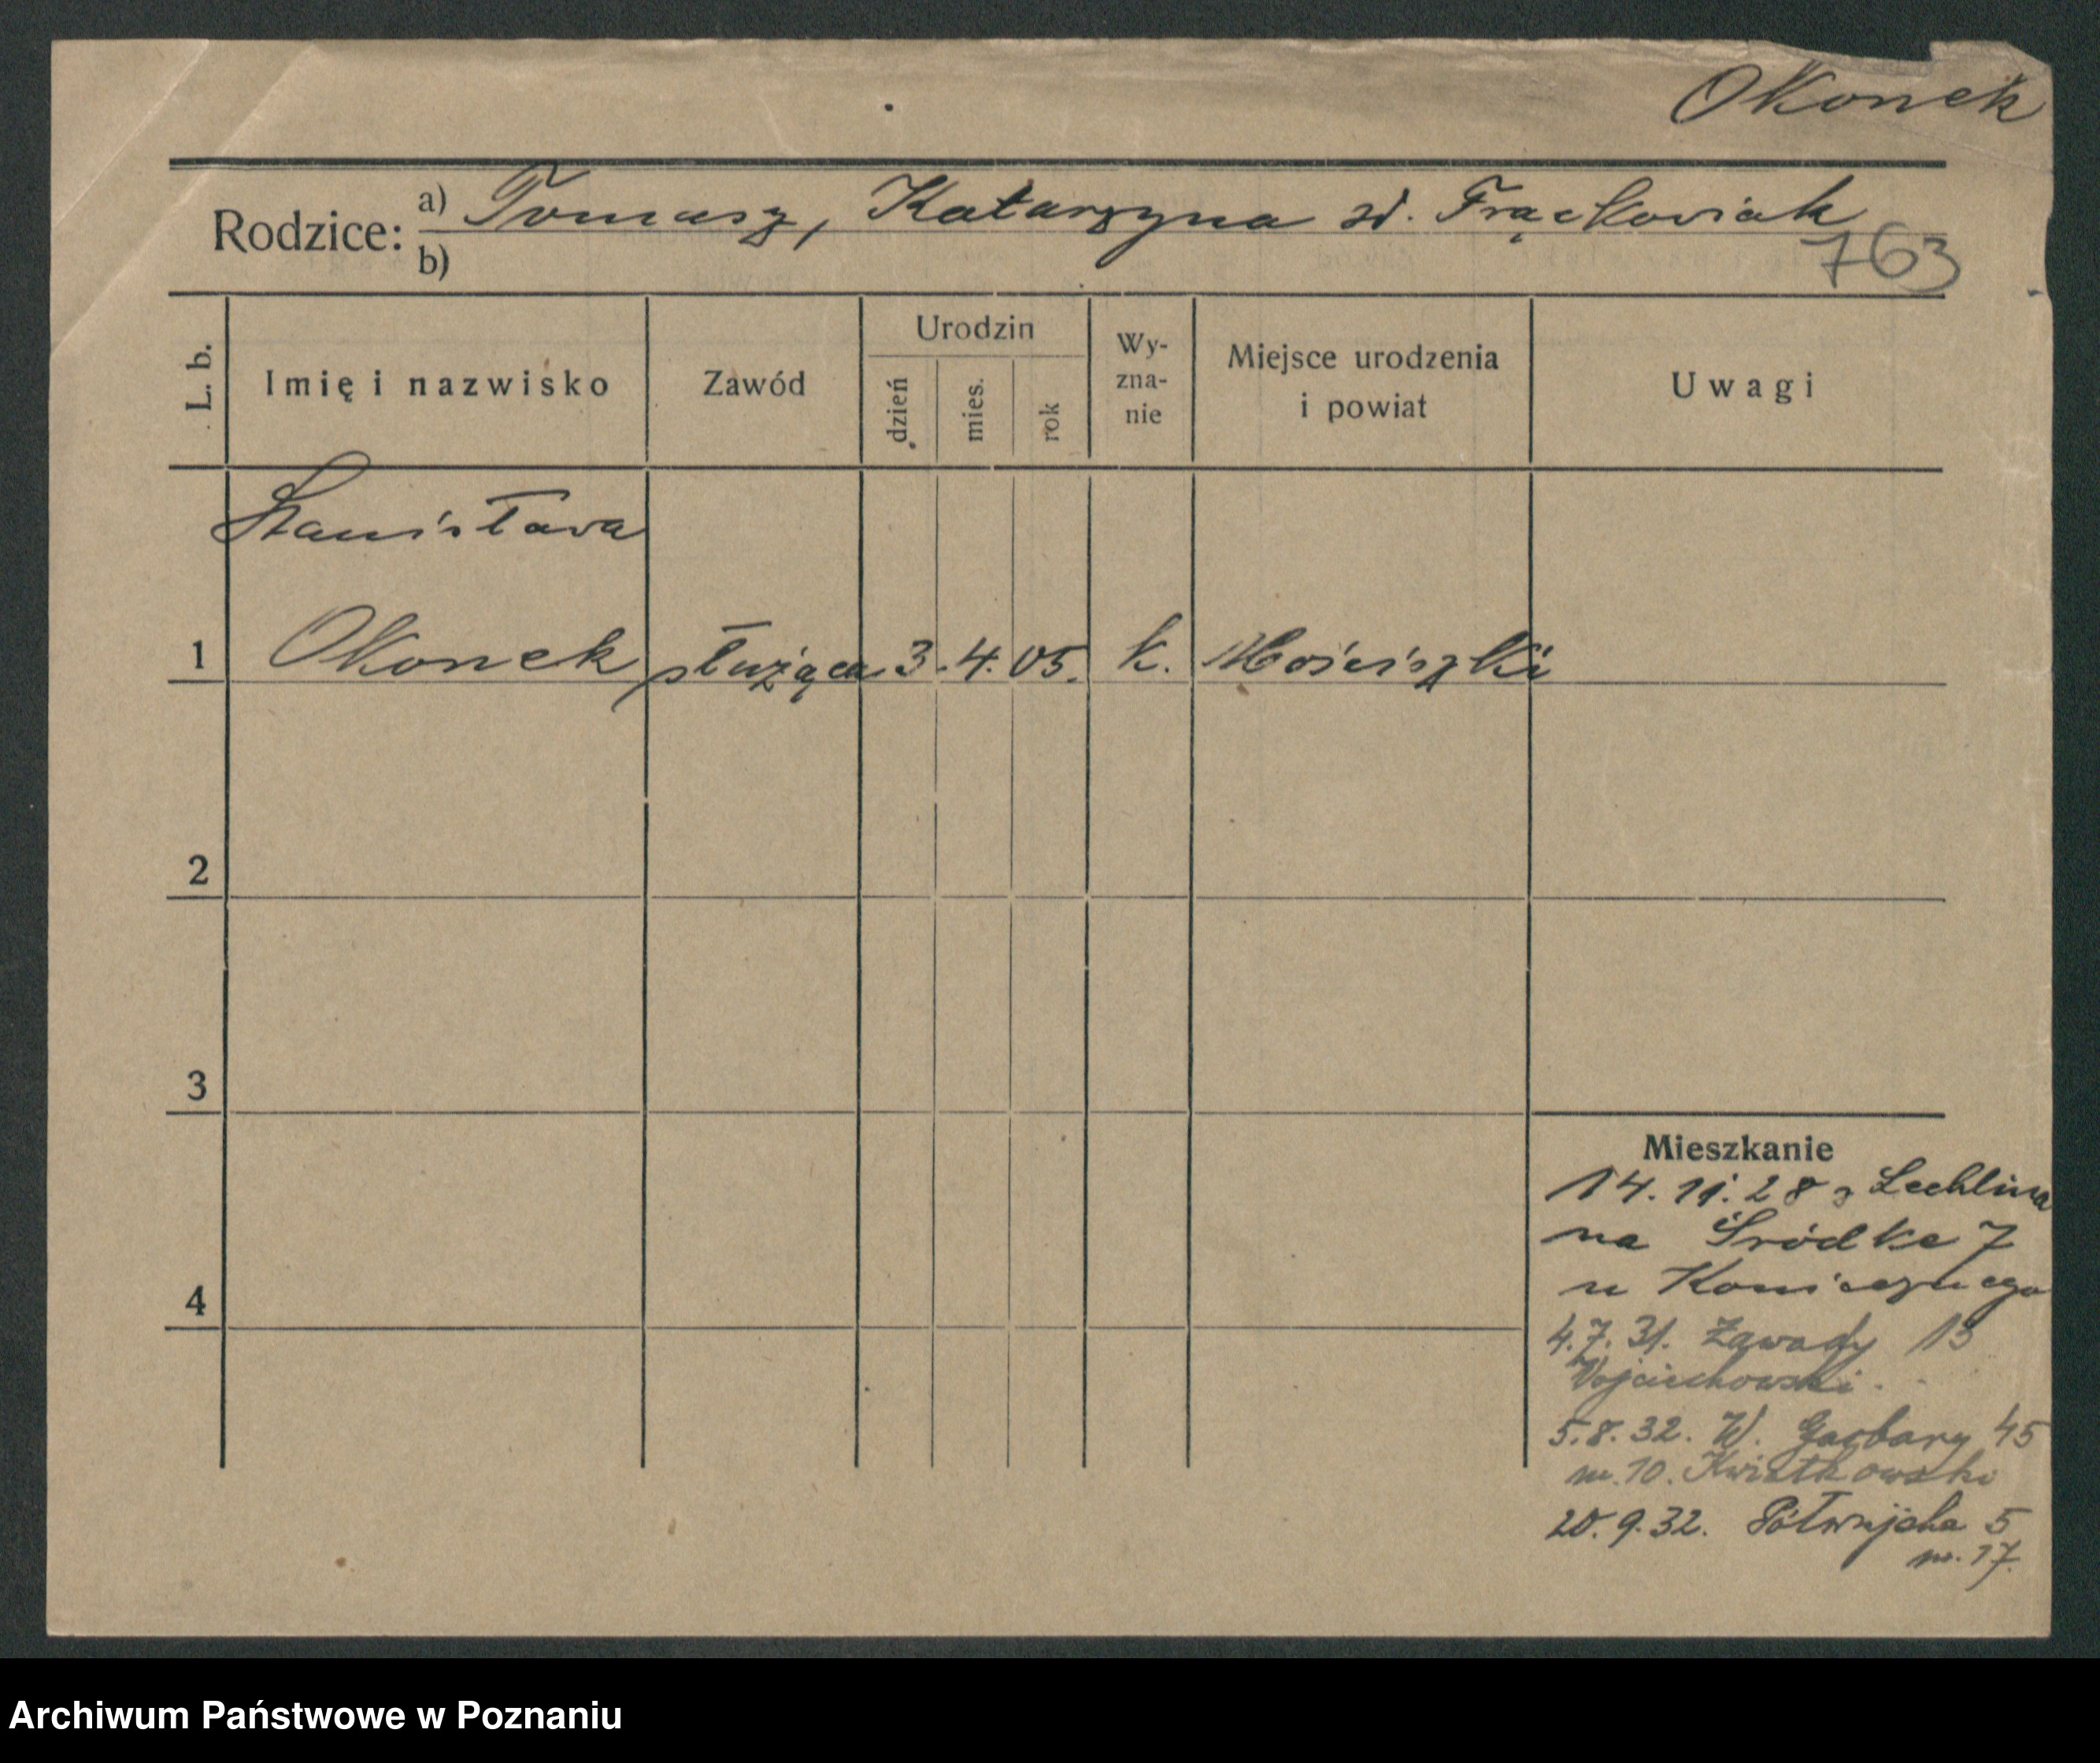 Okonek
Rodzice: a) Tomasz, Katarzyna zd. Frąckowiak
b)
763
L. b.
Imię i nazwisko
Zawód
Urodzin
dzień
mies.
rok
Wy-
zna-
nie
Miejsce urodzenia
i powiat
Uwagi
Stanisława
1 Okonek służąca 3. 4. 05. k. Mościszki
2
3
4
Mieszkanie
14. 11. 28 z Lechlina
na Śródke 7
u Koniecznego
4.7.31. Zawady 13
Wojciechowski.
5.8.32. W. Garbary 45
m. 10. Kwiatkowski
20.9.32. Półwiejska 5
m. 17.
Archiwum Państwowe w Poznaniu